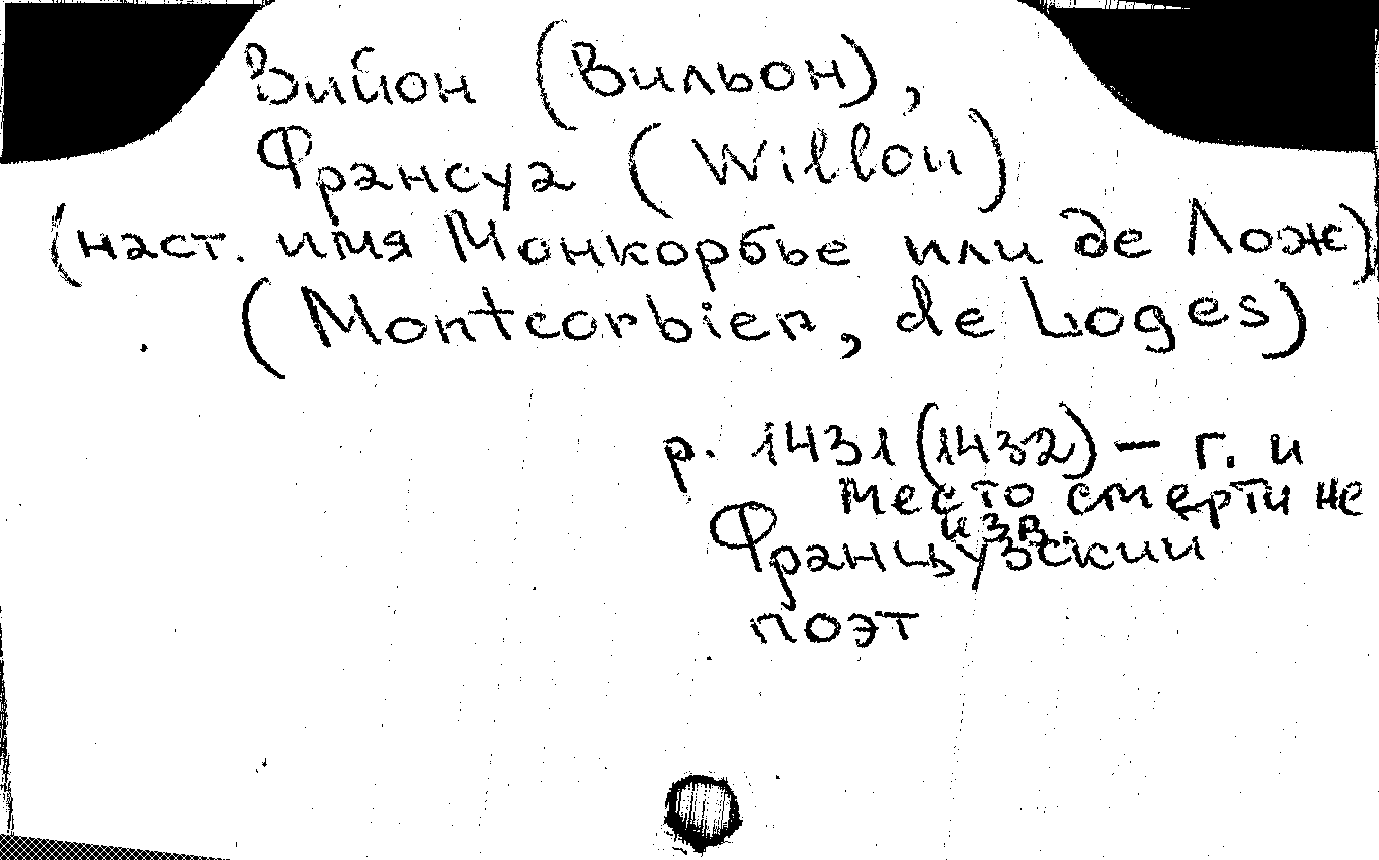 Вийон (Вильон),
Франсуа (Willon)
(наст. имя Монкорбье или де Лож)
(Montcorbier, de Loges)
р. 1431 (1432) – г. и
место смерти не
изв.
Французский
поэт